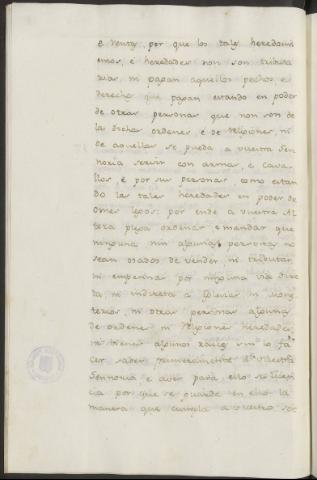 e rentas, por que los tales heredamientos
emos, é heredades non son tributa
rias, ni pagan aquellos pechos, e
derechos que pagan estando en poder
de otras personas que non son de
las dichas ordenes, é de religiones, ni
de aquellas se pueda a vuestra Sen
noria servir con armas, e cava
llos, e por sus personas, como estan
do las tales heredades en poder de
omes legos: por ende a vuestra Al
teza plega ordenar, e mandar que
ninguna nin algunas personas no
sean osados de vender, ni tributar
ni empennar por ninguna via direc
ta, ni indireta a Iglesias, ni Mones
terios, ni otras personas algunas
de ordenes, ni religiones heredades,
ni bienes algunos raices sin lo fa
cer saber primeramente a vuestra
Sennoria e aver para ello su licen
cia por que se guarde en ello la
manera que cumpla a vuestro ser